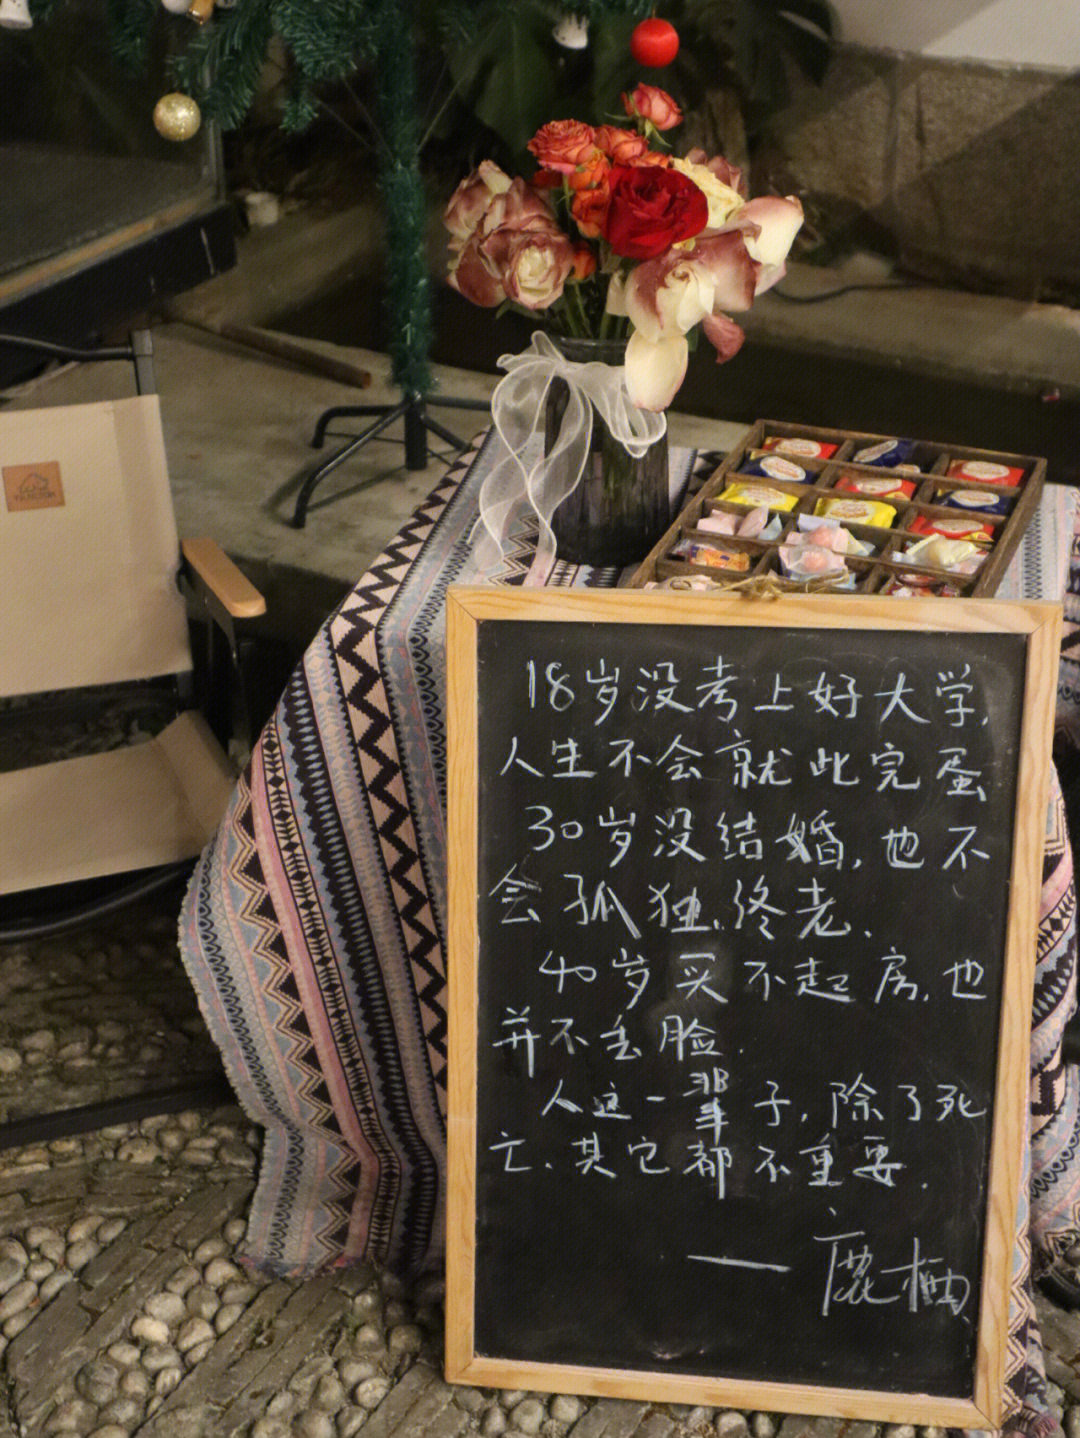 18岁没考上好大学,
人生不会就此完蛋
30岁没结婚,也不
会孤独终老.
40岁买不起房,也
并不丢脸.
人这一辈子,除了死
亡、其它都不重要.
——鹿柚